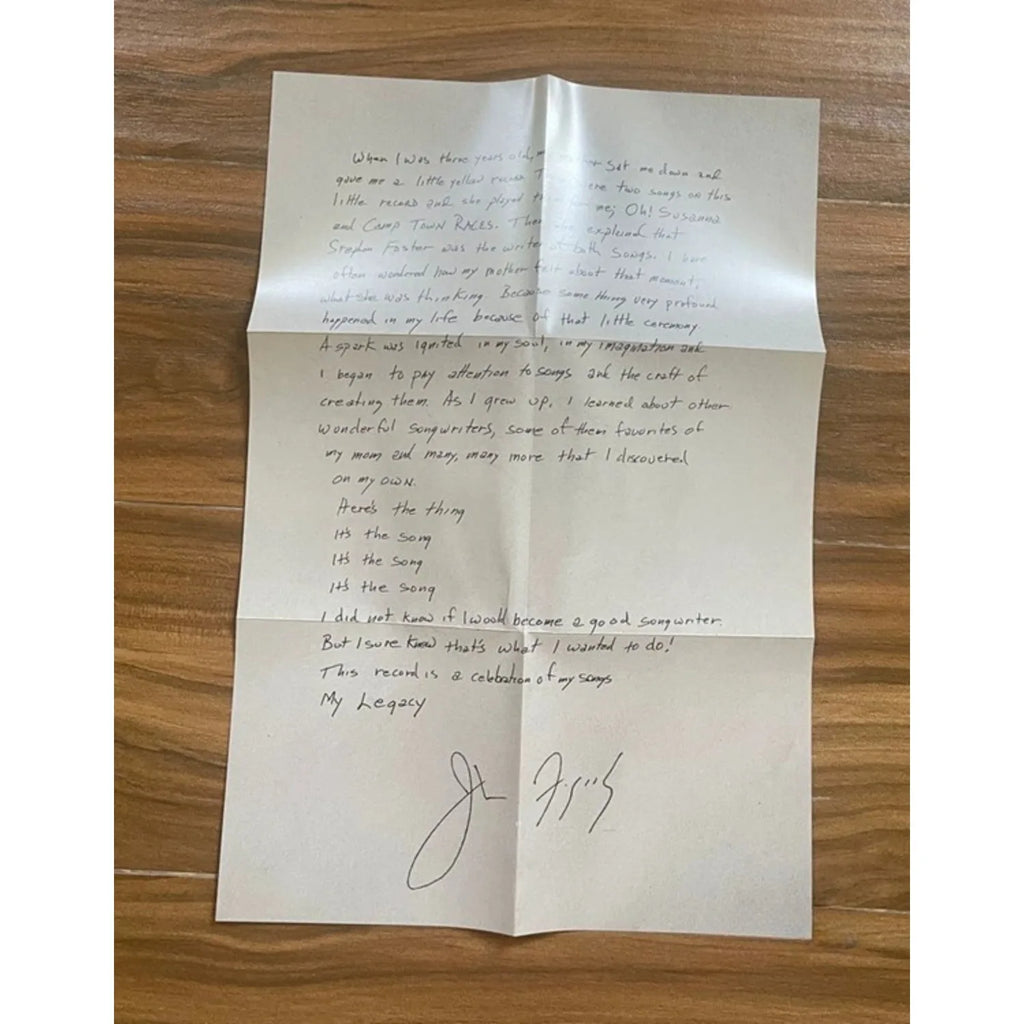 When I was three years old, sat me down and
gave me a little yellow record. two songs on this
little record and she played me; Oh! Susanna
and CAMP TOWN RACES. explained that
Stephen Foster was the writer of both songs. I have
often wondered how my mother felt about that moment,
what she was thinking. Because something very profound
happened in my life because of that little ceremony.
A spark was ignited in my soul, in my imagination and
I began to pay attention to songs and the craft of
creating them. As I grew up, I learned about other
wonderful songwriters, some of them favorites of
my mom and many, many more that I discovered
on my own.
Here's the thing
It's the song
It's the song
It's the song
I did not know if I would become a good songwriter.
But I sure knew that's what I wanted to do!
This record is a celebration of my songs
My Legacy
John